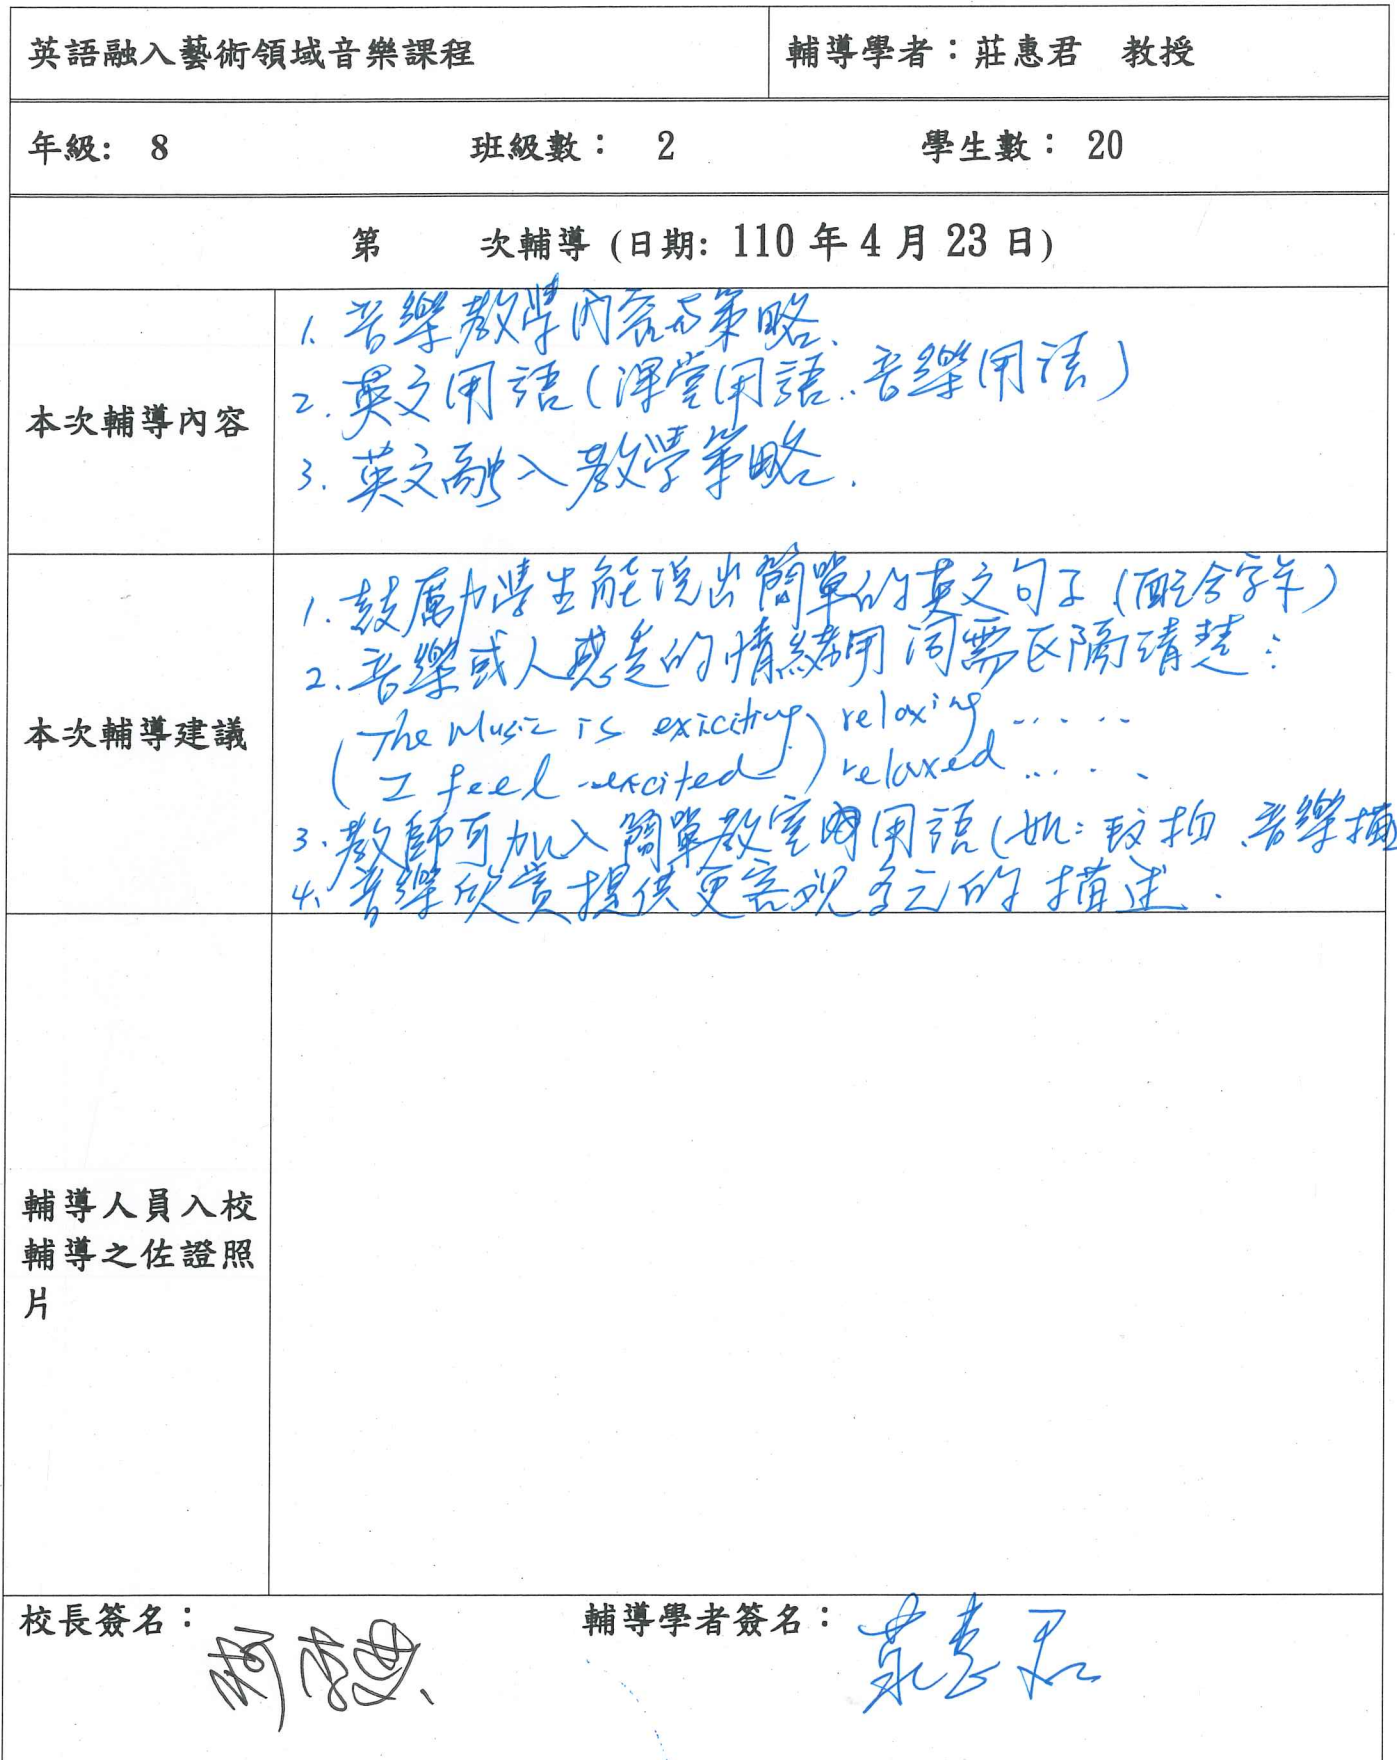 英語融入藝術領域音樂課程 輔導學者：莊惠君 教授
年級: 8 班級數： 2 學生數： 20
第 次輔導 (日期: 110 年 4 月 23 日)
本次輔導內容
1. 音樂教學內容与策略.
2. 英文用語 (課堂用語、音樂用語)
3. 英文融入教學策略.
本次輔導建議
1. 鼓勵學生能說出簡單的英文句子 (配合字卡)
2. 音樂或人感受的情緒用詞需区隔清楚：
(The Music is exiciting) relaxing .....
(I feel excited) relaxed .....
3. 教師可加入簡單教室用語 (如: 拍、音樂描
4. 音樂欣賞提供更客观多元的描述.
輔導人員入校
輔導之佐證照
片
校長簽名： 柯 輔導學者簽名： 莊惠君